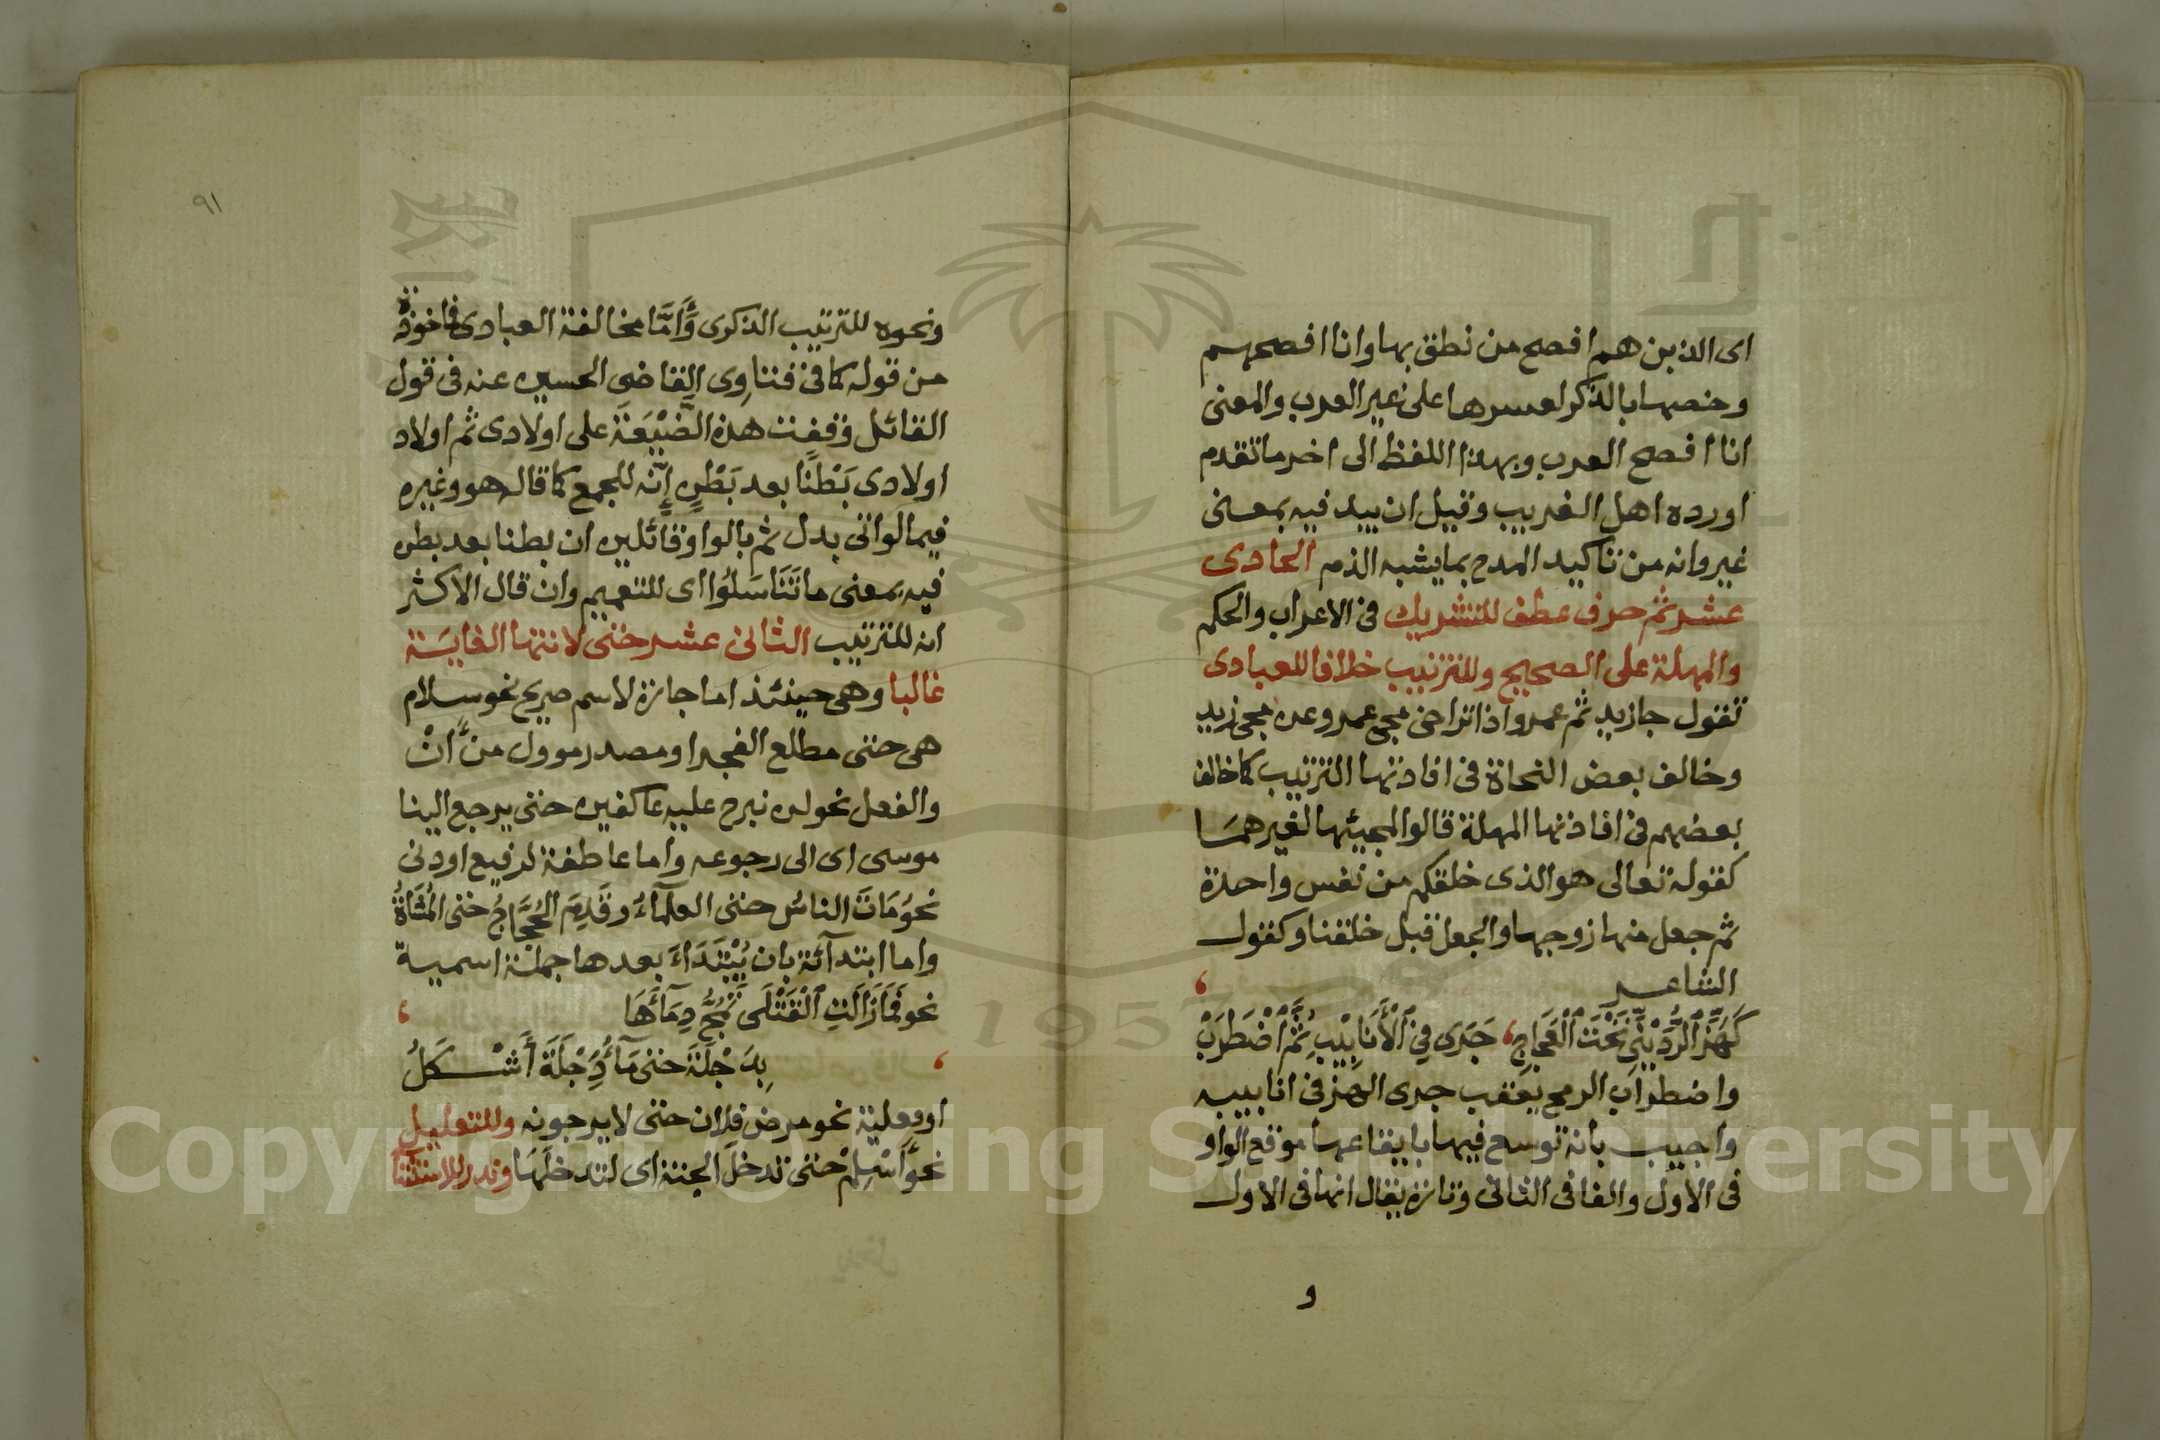 اى الذين هم افصح من نطق بها وانا افصحهم
وخصها بالذكر لعسرها على غير العرب والمعنى
انا افصح العرب وبهذا اللفظ الى اخر ما تقدم
اورده اهل الغريب وقيل ان بيد فيه بمعنى
غير وانه من تاكيد المدح بما يشبه الذم الحادى
عشر ثم حرف عطف للتشريك فى الاعراب والحكم
والمهلة على الصحيح وللترتيب خلافا للعبادى
تقول جا زيد ثم عمرو اذا تراخى مجى عمرو عن مجى زيد
وخالف بعض النحاة فى افادتها الترتيب كما خالف
بعضهم فى افادتها المهلة قالوا لمجيئها لغيرهما
كقوله تعالى هو الذى خلقكم من نفس واحدة
ثم جعل منها زوجها والجعل قبل خلقنا وكقول
الشاعر
كَهَزِّ الرُّدَيْنِيِّ تَحْتَ الْعَجَاجِ، جَرَى فِي الْأَنَابِيْبِ ثُمَّ اضْطَرَبْ
واضطراب الرمح يعقب جرى الهز فى انابيبه
واجيب بانه توسع فيها بايقاعها موقع الواو
فى الاول والفا فى الثانى وتارة يقال انها فى الاول
و
٩١
ونحوه للترتيب الذكرى وَأَمَّا مخالفة العبادى فماخوذة
من قوله كما فى فتاوى القاضى الحسين عنه فى قول
القائل وقفت هذه الضَّيْعَةَ على اولادى ثم اولاد
اولادى بَطْنًا بعد بَطْنٍ إنّه للجمع كما قال هو وغيره
فيما لو اتى بدل ثم بالواو قائلين ان بطنا بعد بطن
فيه بمعنى ما تَنَاسَلُوا اى للتعميم وان قال الاكثر
انه للترتيب الثانى عشر حتى لانتها الغاية
غالبا وهى حينئذ اما جارة لاسم صريح نحو سلام
هى حتى مطلع الفجر او مصدر موول من أَنْ
والفعل نحو لن نبرح عليه عاكفين حتى يرجع الينا
موسى اى الى رجوعه واما عاطفة لرفيع او دنى
نحو مَاتَ الناسُ حتى العلمآءُ وقَدِمَ الحُجَّاجُ حتى المُشَاةُ
واما ابتدآئة بان يُبْتَدَاَ بعدها جملة اسمية
نحو فَمَا زَالَتِ الْقَتْلَى تَمُجُّ دِمَآءَهَا
بِدَجْلَةَ حتى مَآءُ دِجْلَةَ أَشْكَلُ
او فعلية نحو مرض فلان حتى لا يرجونه وللتعليل
نحو أَسْلِمْ حتى تدخلَ الجنة اى لتدخلَهَا وندر للاستثنا